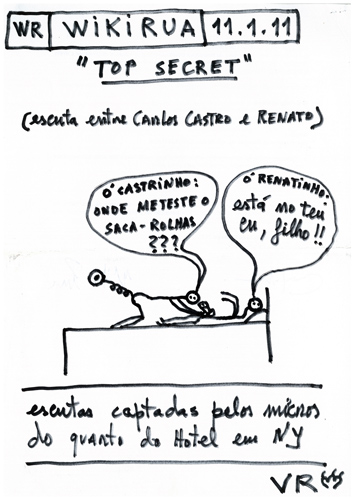 WR WIKIRUA 11.1.11
"TOP SECRET"
(escuta entre CARLOS CASTRO e RENATO)
Ó CASTRINHO:
ONDE METESTE O
SACA-ROLHAS
???
Ó RENATINHO:
está no teu
cu, filho!!
escutas captadas pelos micros
do quarto do Hotel em NY
VR